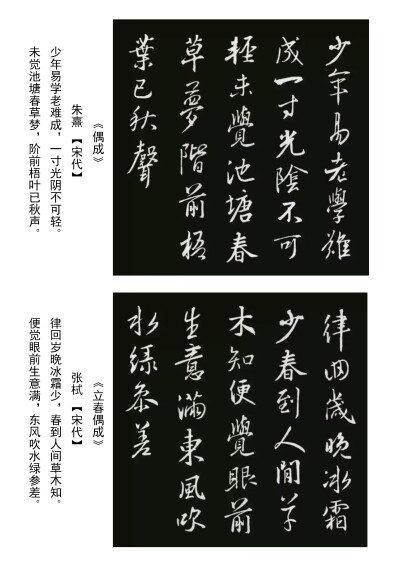 少年易老學難
成一寸光陰不可
輕未覺池塘春
草夢階前梧
葉已秋聲
《偶成》
朱熹 【宋代】
少年易学老难成，一寸光阴不可轻。
未觉池塘春草梦，阶前梧叶已秋声。
律回歲晚冰霜
少春到人間草
木知便覺眼前
生意滿東風吹
水綠參差
《立春偶成》
张栻 【宋代】
律回岁晚冰霜少，春到人间草木知。
便觉眼前生意满，东风吹水绿参差。